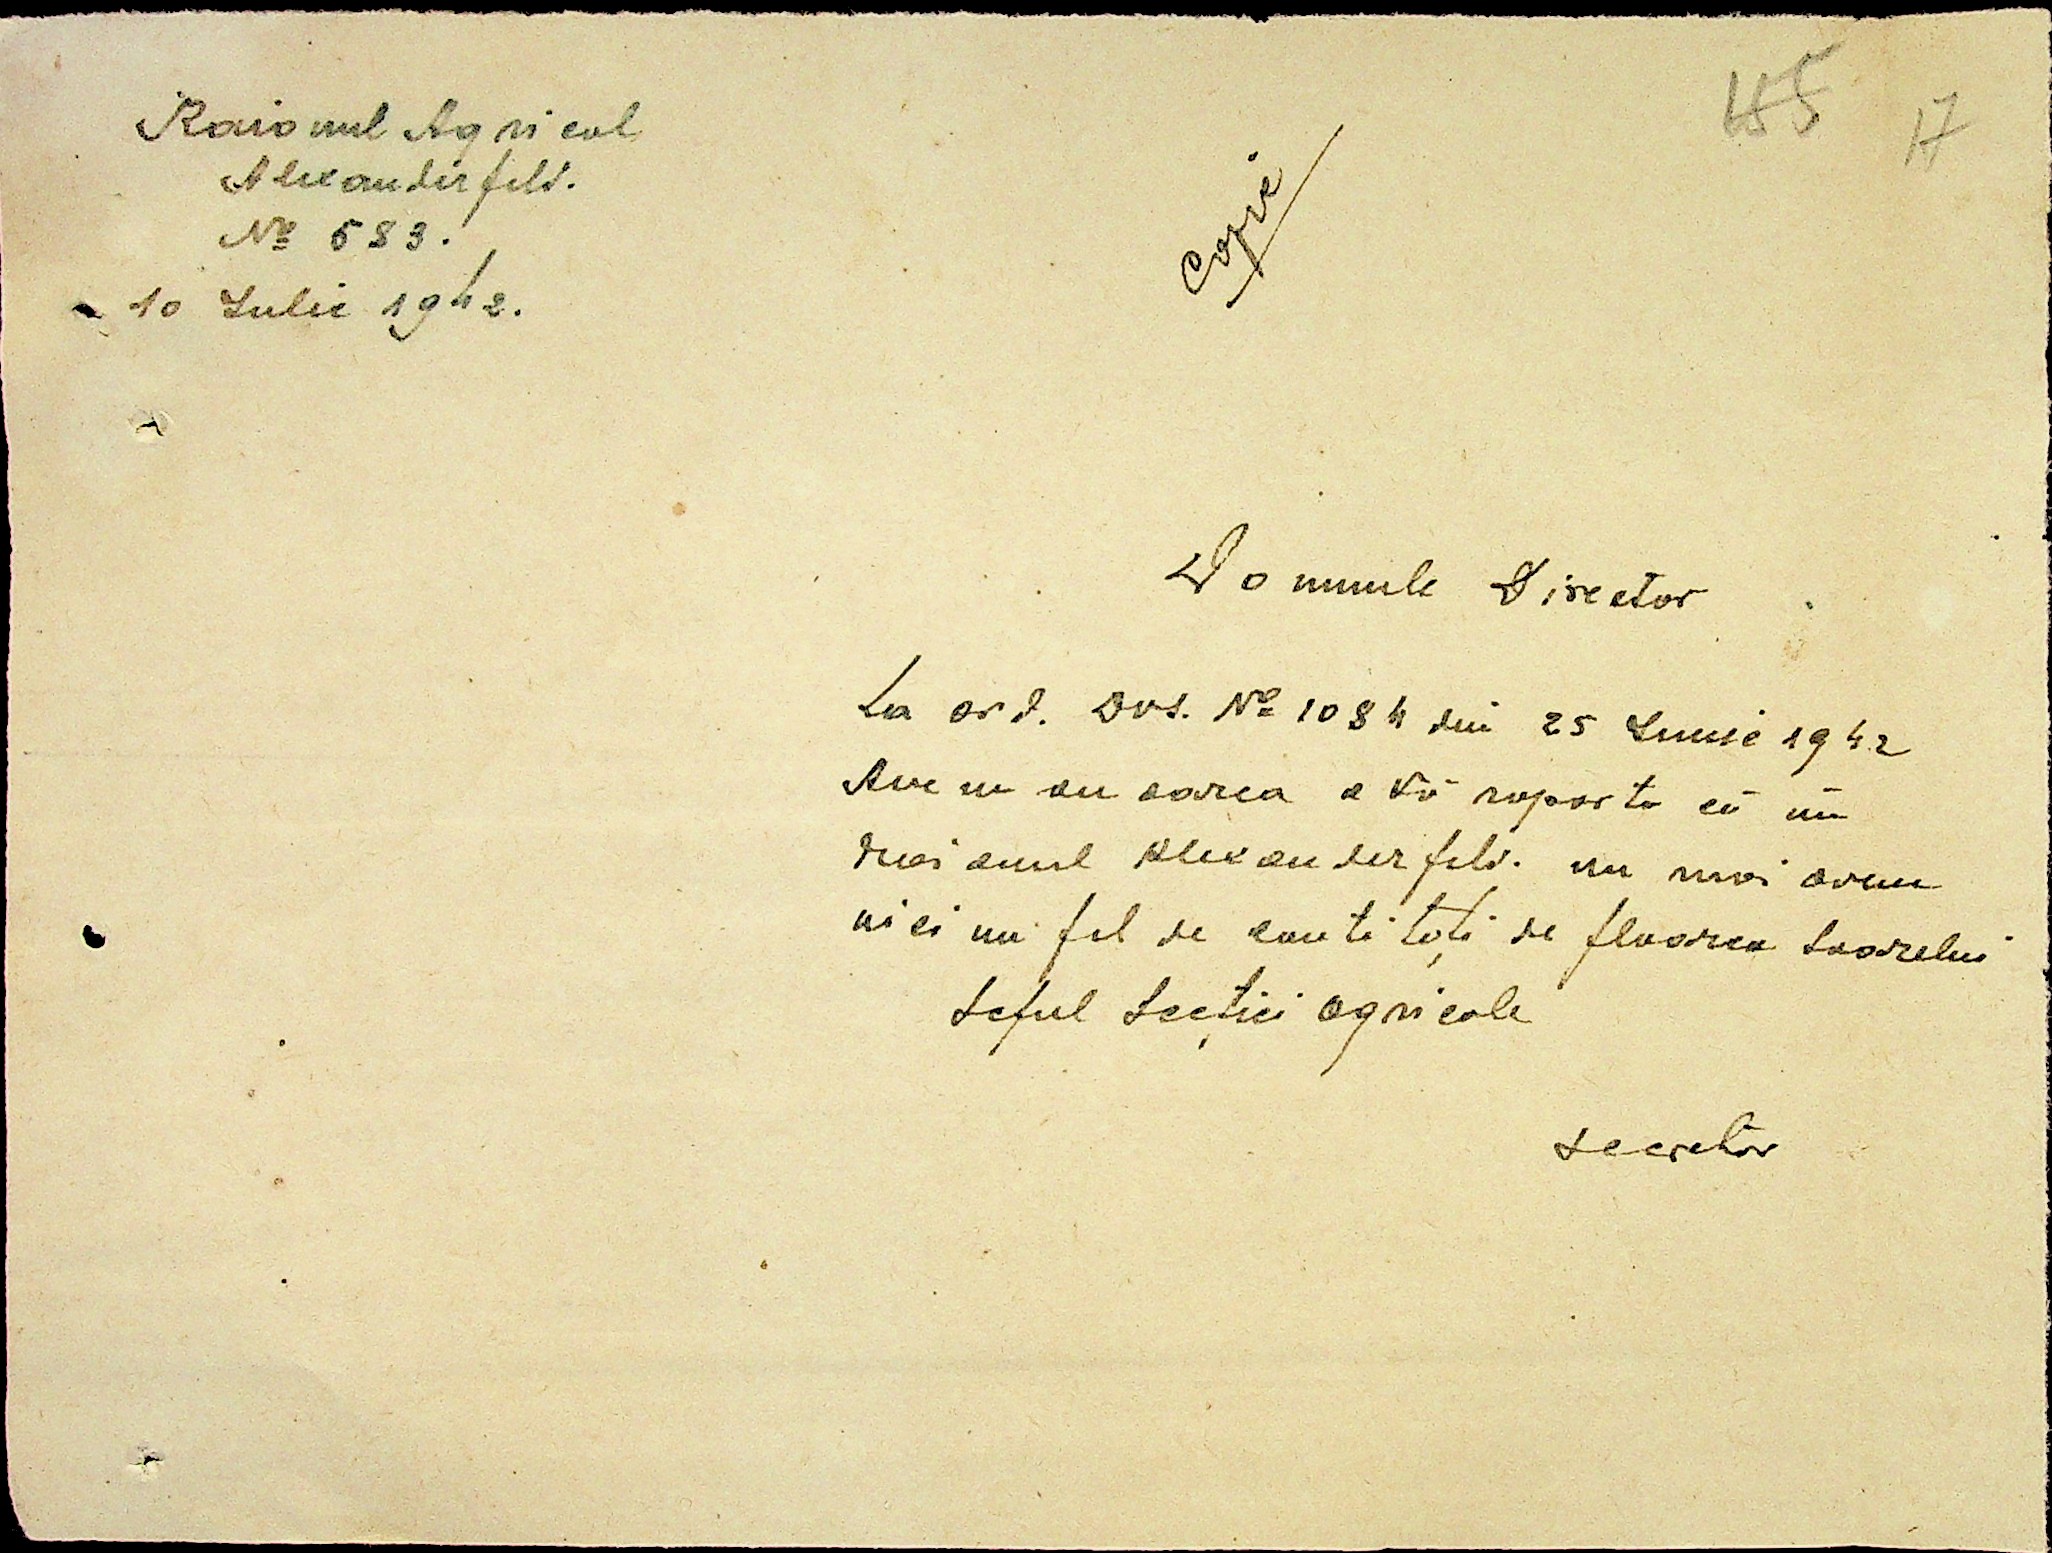 Raionul Agricol
Alexanderfeld.
No 583.
10 Iulie 1942.
Copie
155
17
Domnule Director
La ord. Dvs. No 1084 din 25 Iunie 1942
Avem onoarea a Vă raporta că în
raionul Alexanderfeld. nu mai avem
nici un fel de cantități de floarea soarelui
Seful Secției agricole
Secretar